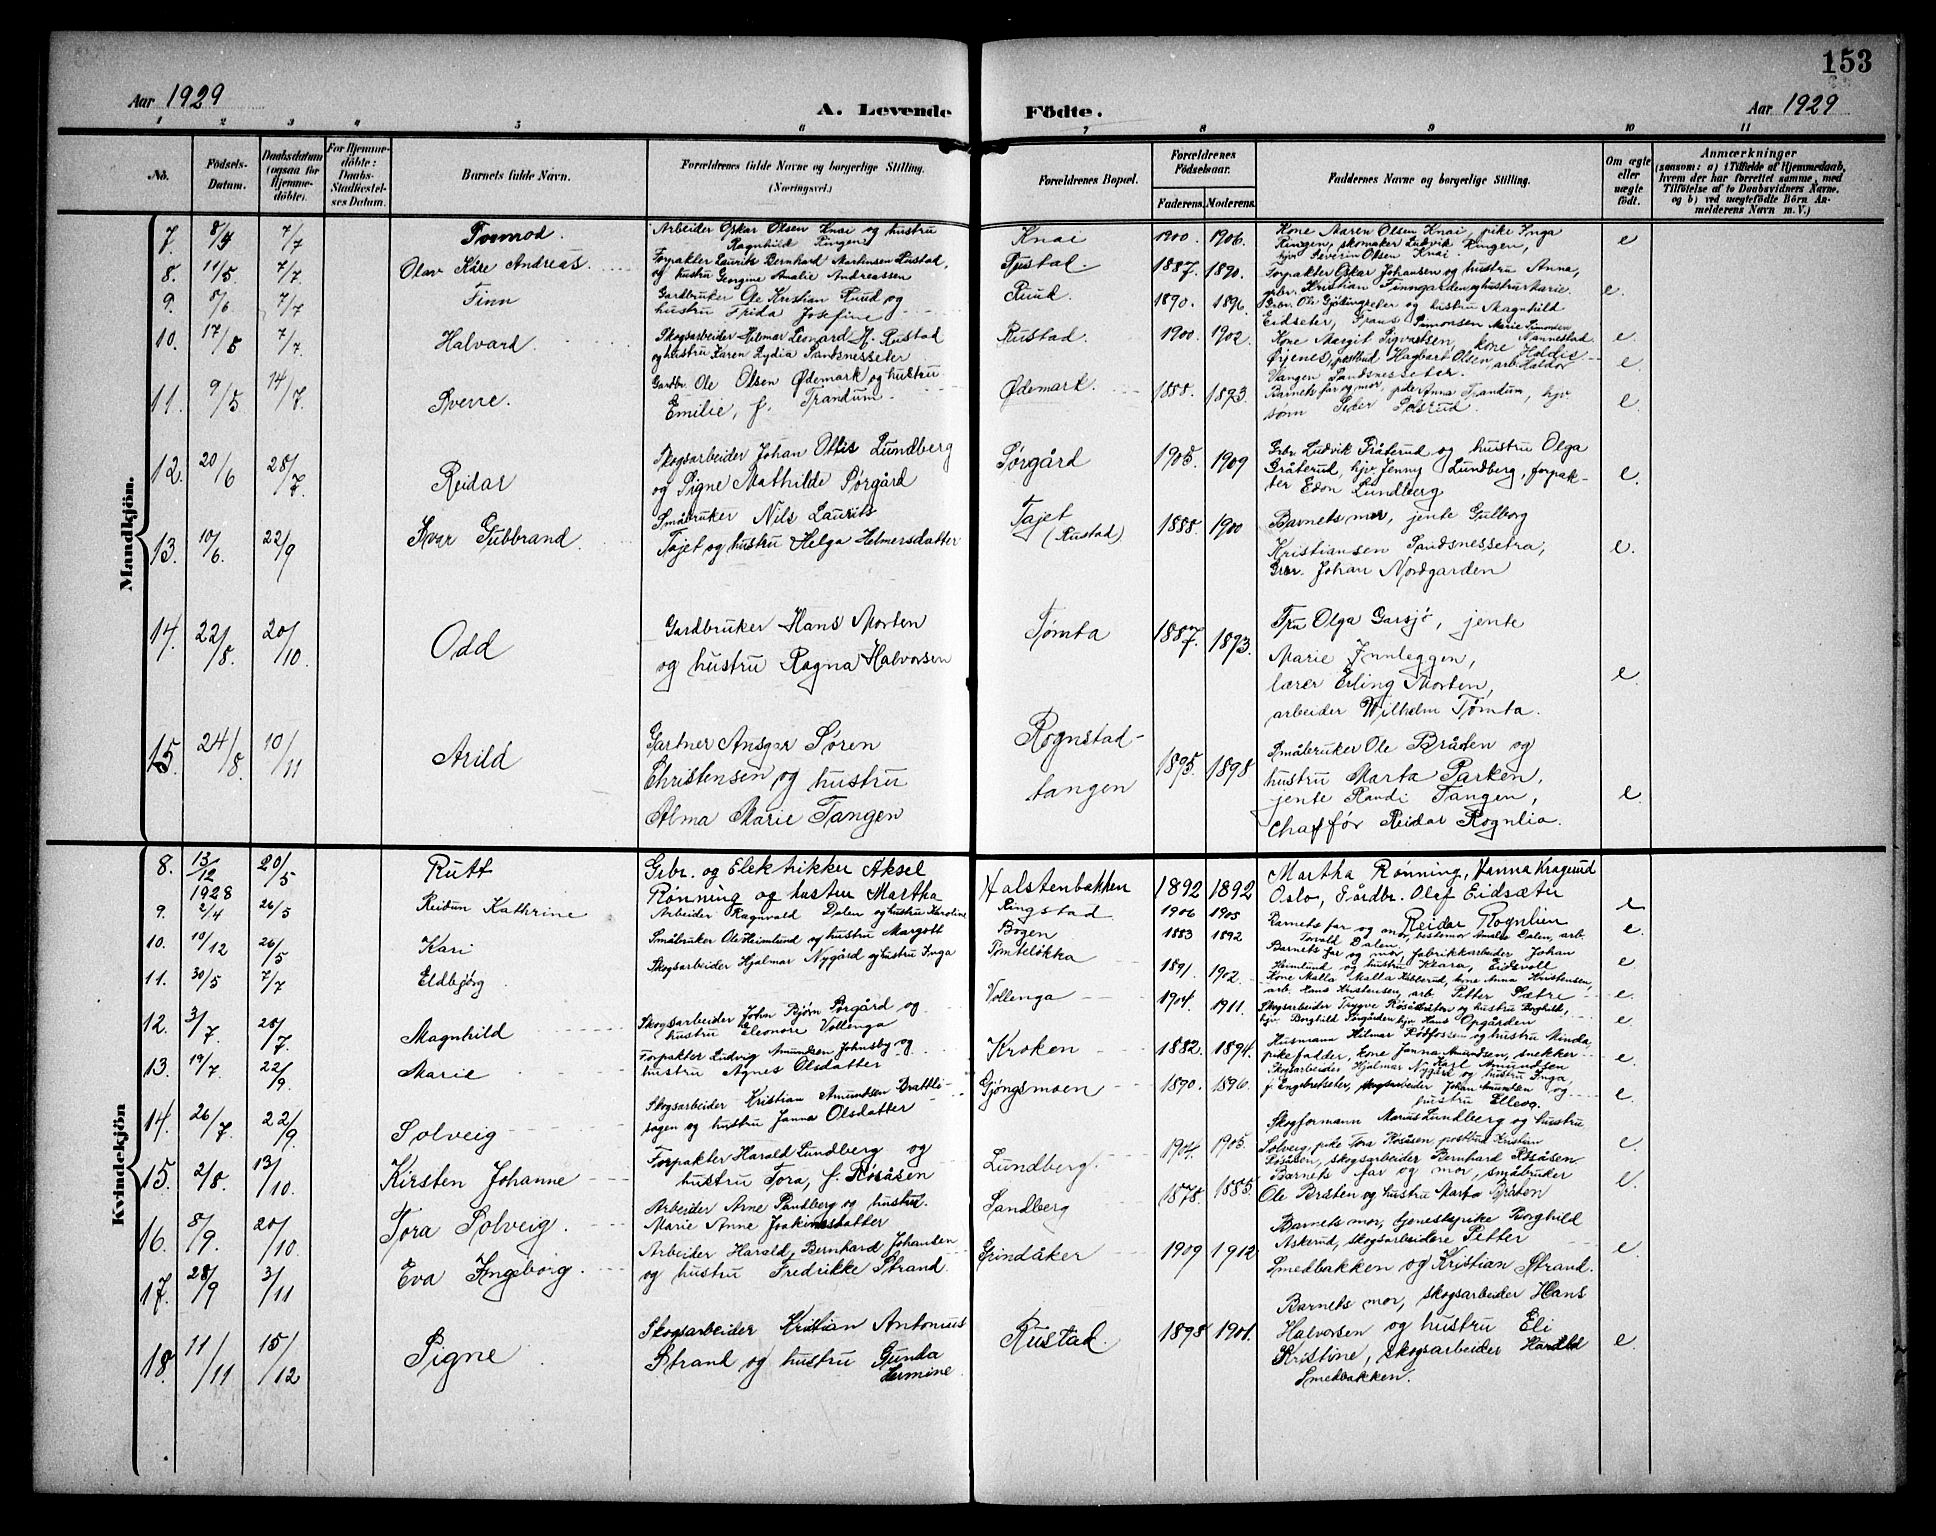 153
Aar 1929
A. Levende Födte.
Aar 1929
1 2 3 4 5 6 7 8 9 10 11
No.
Födsels-Datum.
Daabsdatum (ogsaa for Hjemme-döbte).
For Hjemme-döbte: Daabs-Stadfæstelses Datum.
Barnets fulde Navn.
Forældrenes fulde Navne og borgerlige Stilling.
(Næringsvei.)
Forældrenes Bopæl.
Forældrenes Födselsaar.
Faderens. Moderens.
Faddernes Navne og borgerlige Stilling.
Om ægte eller uægte födt.
Anmærkninger
(saasom: a) i Tilfælde af Hjemmedaab, hvem der har forrettet samme, med Tilföielse af to Daabsvidners Navne. og b) ved uægtefödte Börn Anmelderens Navn m. V.)
Mandkjön.
7. 8/5 7/7 Tormod. Arbeider Oskar Olsen Knai og hustru
Ragnhild Ringen. Knai 1900. 1906. Kone Karen Olsen Knai, pike Inga
Ringen, skomaker Ludvik Ringen,
hjv Severin Olsen Knai. e
8. 11/5 7/7. Olav Kåre Andreas. Forpakter Laurik Bernhard Martinsen Rustad,
og hustru Georgine Amalie Andreassen Rustad. 1887. 1890. Forpakter Oskar Johansen og hustru Anna,
grbr. Kristian Finngarden og hustru Marie. e.
9. 8/6 7/7 Finn Gardbruker Ole Kristian Ruud og
hustru Frida Josefine Ruud. 1890. 1896. Grbr. Ole Gjødingseter og hustru Magnhild
Eidseter, Frans Simonsen Marie Simonsen e
10. 17/5 7/7 Halvard Skogsarbeider Hilmar Leonard H. Rustad
og hustru Karen Lydia Sandsnesseter Rustad. 1900 1902. Kone Margit Sigvartsen, kone Nannestad
Ørjenes, postbud Hagbart Olsen, arb. Haldor
Vangen Sandsnesseter. e
11. 9/5 14/7. Sverre. Gardbr. Ole Olsen Ødemark og hustru
Emilie, f. Trandum. Ødemark. 1888. 1893. Barnets far og mor, pike Anna Trandum, hjv
sønn Peder Solsrud. e
12. 20/6 28/7. Reidar Skogsarbeider Johan Ottis Lundberg
og Signe Mathilde Sørgård Sørgård 1905. 1909 Grbr Ludvik Gråterud og hustru Olga
Gråterud, hjv Jenny Lundberg, forpak-
ter Edon Lundberg e.
13. 10/6. 22/9 Ivar Gubbrand Småbruker Nils Laurits
Tajet og hustru Helga Helmersdatter Tajet
(Rustad) 1888. 1900 Barnets mor, jente Gulborg
Kristiansen Sandsnessetra,
Grbr. Johan Nordgarden e.
14. 22/8. 20/10. Odd Gardbruker Hans Morten
og hustru Ragna Halvorsen Tømta 1887. 1893. Fru Olga Garsjø, jente
Marie Innleggen,
lærer Erling Morten,
arbeider Wilhelm Tømta. e.
15. 24/8. 10/11 Arild Gartner Ansgar Søren
Christensen og hustru
Alma Marie Tangen Rognstad-
tangen 1895. 1898 Småbruker Ole Bråten og
hustru Marta Parken,
jente Randi Tangen,
chaffør Reidar Rognlia. e
Kvindekjön
8. 13/12 1928 20/5 Rutt Grbr. og Elektrikker Aksel
Rønning og hustru Martha Halstenbakken 1892 1892 Martha Rønning, Hanna Kragerud
Oslo, Gårdbr. Olef Eidsæter
Reidar Rognlien e
9. 2/4 26/5 Reidun Kathrine Arbeider Ragnvald Dalen og hustru Karoline Ringstad 1906 1905 Barnets far og mor, bestemor Amalie Dalen, arb.
Torvald Dalen. e.
10. 10/12 26/5 Kari Småbruker Ole Heimlund og hustru Margott Bogen 1883 1892 Barnets far og mor, fabrikkarbeider Johan
Heimlund og hustru Klara, Eidsvoll e
11. 30/5 7/7 Eldbjørg Skogsarbeider Hjalmar Nygård og hustru Inga Tømteløkka 1891. 1902. Kone Malla Kibberud, kone Anna Kristensen,
arb. Hans Kristensen, arb. Petter Sætre e.
12. 3/7. 28/7 Magnhild Skogsarbeider John Bjørn Sørgård og
hustru Eleonore Vollenga Vollenga 1904. 1911. Skogsarbeider Trygve Røsåsen og hustru Borghild,
hjv Borghild Sørgården hjv Hans Opgården e
13. 19/7. 22/9. Marie Forpakter Ludvig Amundsen Johnsby og
hustru Agnes Olsdatter Kroken 1882. 1894. Husmann Hilmar Rødfossen og hustru Minda,
pikefadder, kone Janna Amundsen, snekker
Karl Amundsen e.
14. 26/7 22/9 Solveig Skogsarbeider Kristian Amundsen Brattli-
sagen og hustru Janna Olsdatter Gjøngsmoen 1890. 1896. Skogsarbeider Hjalmar Nygård og hustru Inga
f. Engebretseter, skogsarbeider Johan Amundsen og
hustru Elleva. e.
15. 2/8. 13/10. Kirsten Johanne Forpakter Harald Lundberg og
hustru Tora, f. Røsåsen Lundberg. 1904. 1905. Skogformann Marius Lundberg og hustru
Solveig, pike Tora Røsåsen postbud Kristian
Røsåsen, skogsarbeider Bernhard Røsåsen. e
16. 8/9. 20/10. Tora Solveig. Arbeider Arne Sandberg og hustru.
Marie Anne Joakimsdatter Sandberg 1878. 1885. Barnets far og mor, småbruker
Ole Bråten og hustru Marta Bråten e.
17. 28/9 3/11 Eva Ingeborg. Arbeider Harald Bernhard Johansen
og hustru Fredrikke Strand. Grindåker 1909 1912 Barnets mor, tjenestepike Borghild
Askerud, skogsarbeidere Petter
Smedbakken og Kristian Strand. e
18. 11/11 15/12 Signe Skogsarbeider Kristian Antonius
Strand og hustru Gunda
Hermine Rustad 1898 1901. Barnets mor, skogsarbeider Hans
Halvorsen og hustru Eli
Kristine, skogsarbeider Harald
Smedbakken. e